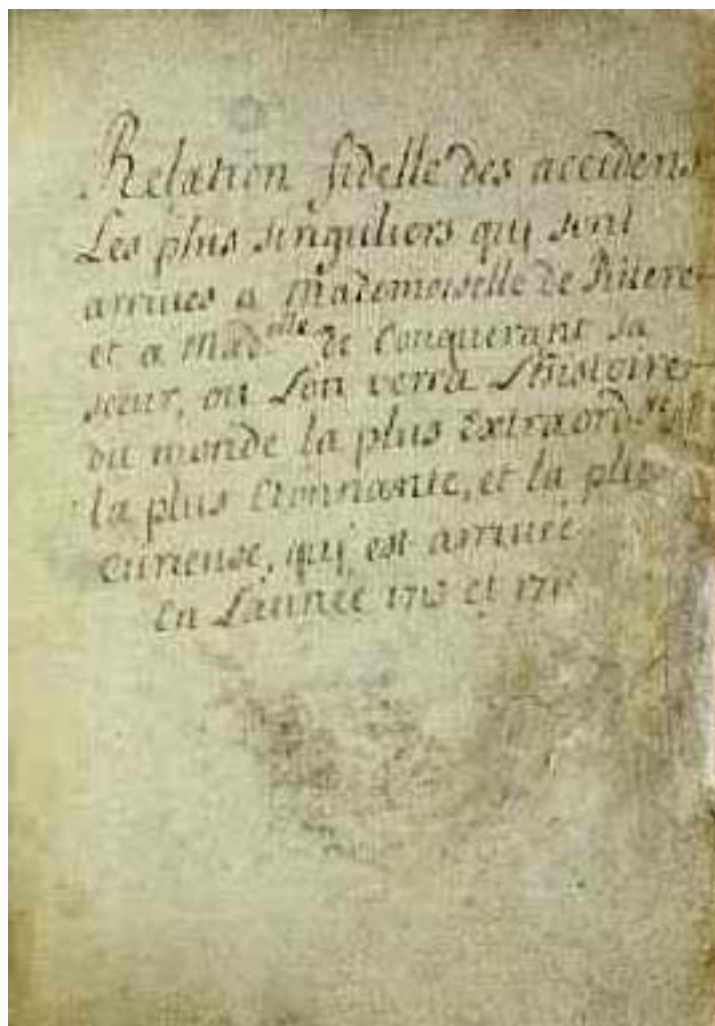 Relation fidelle des accidens
Les plus singuliers qui sont
arrivés a Mademoiselle de
et a Mad.elle de Conquerant sa
sœur, ou L'on verra L'histoire
du monde la plus Extraord.re et
la plus Etonnante, et la plus
curieuse, qui est arrivée
En L'année et